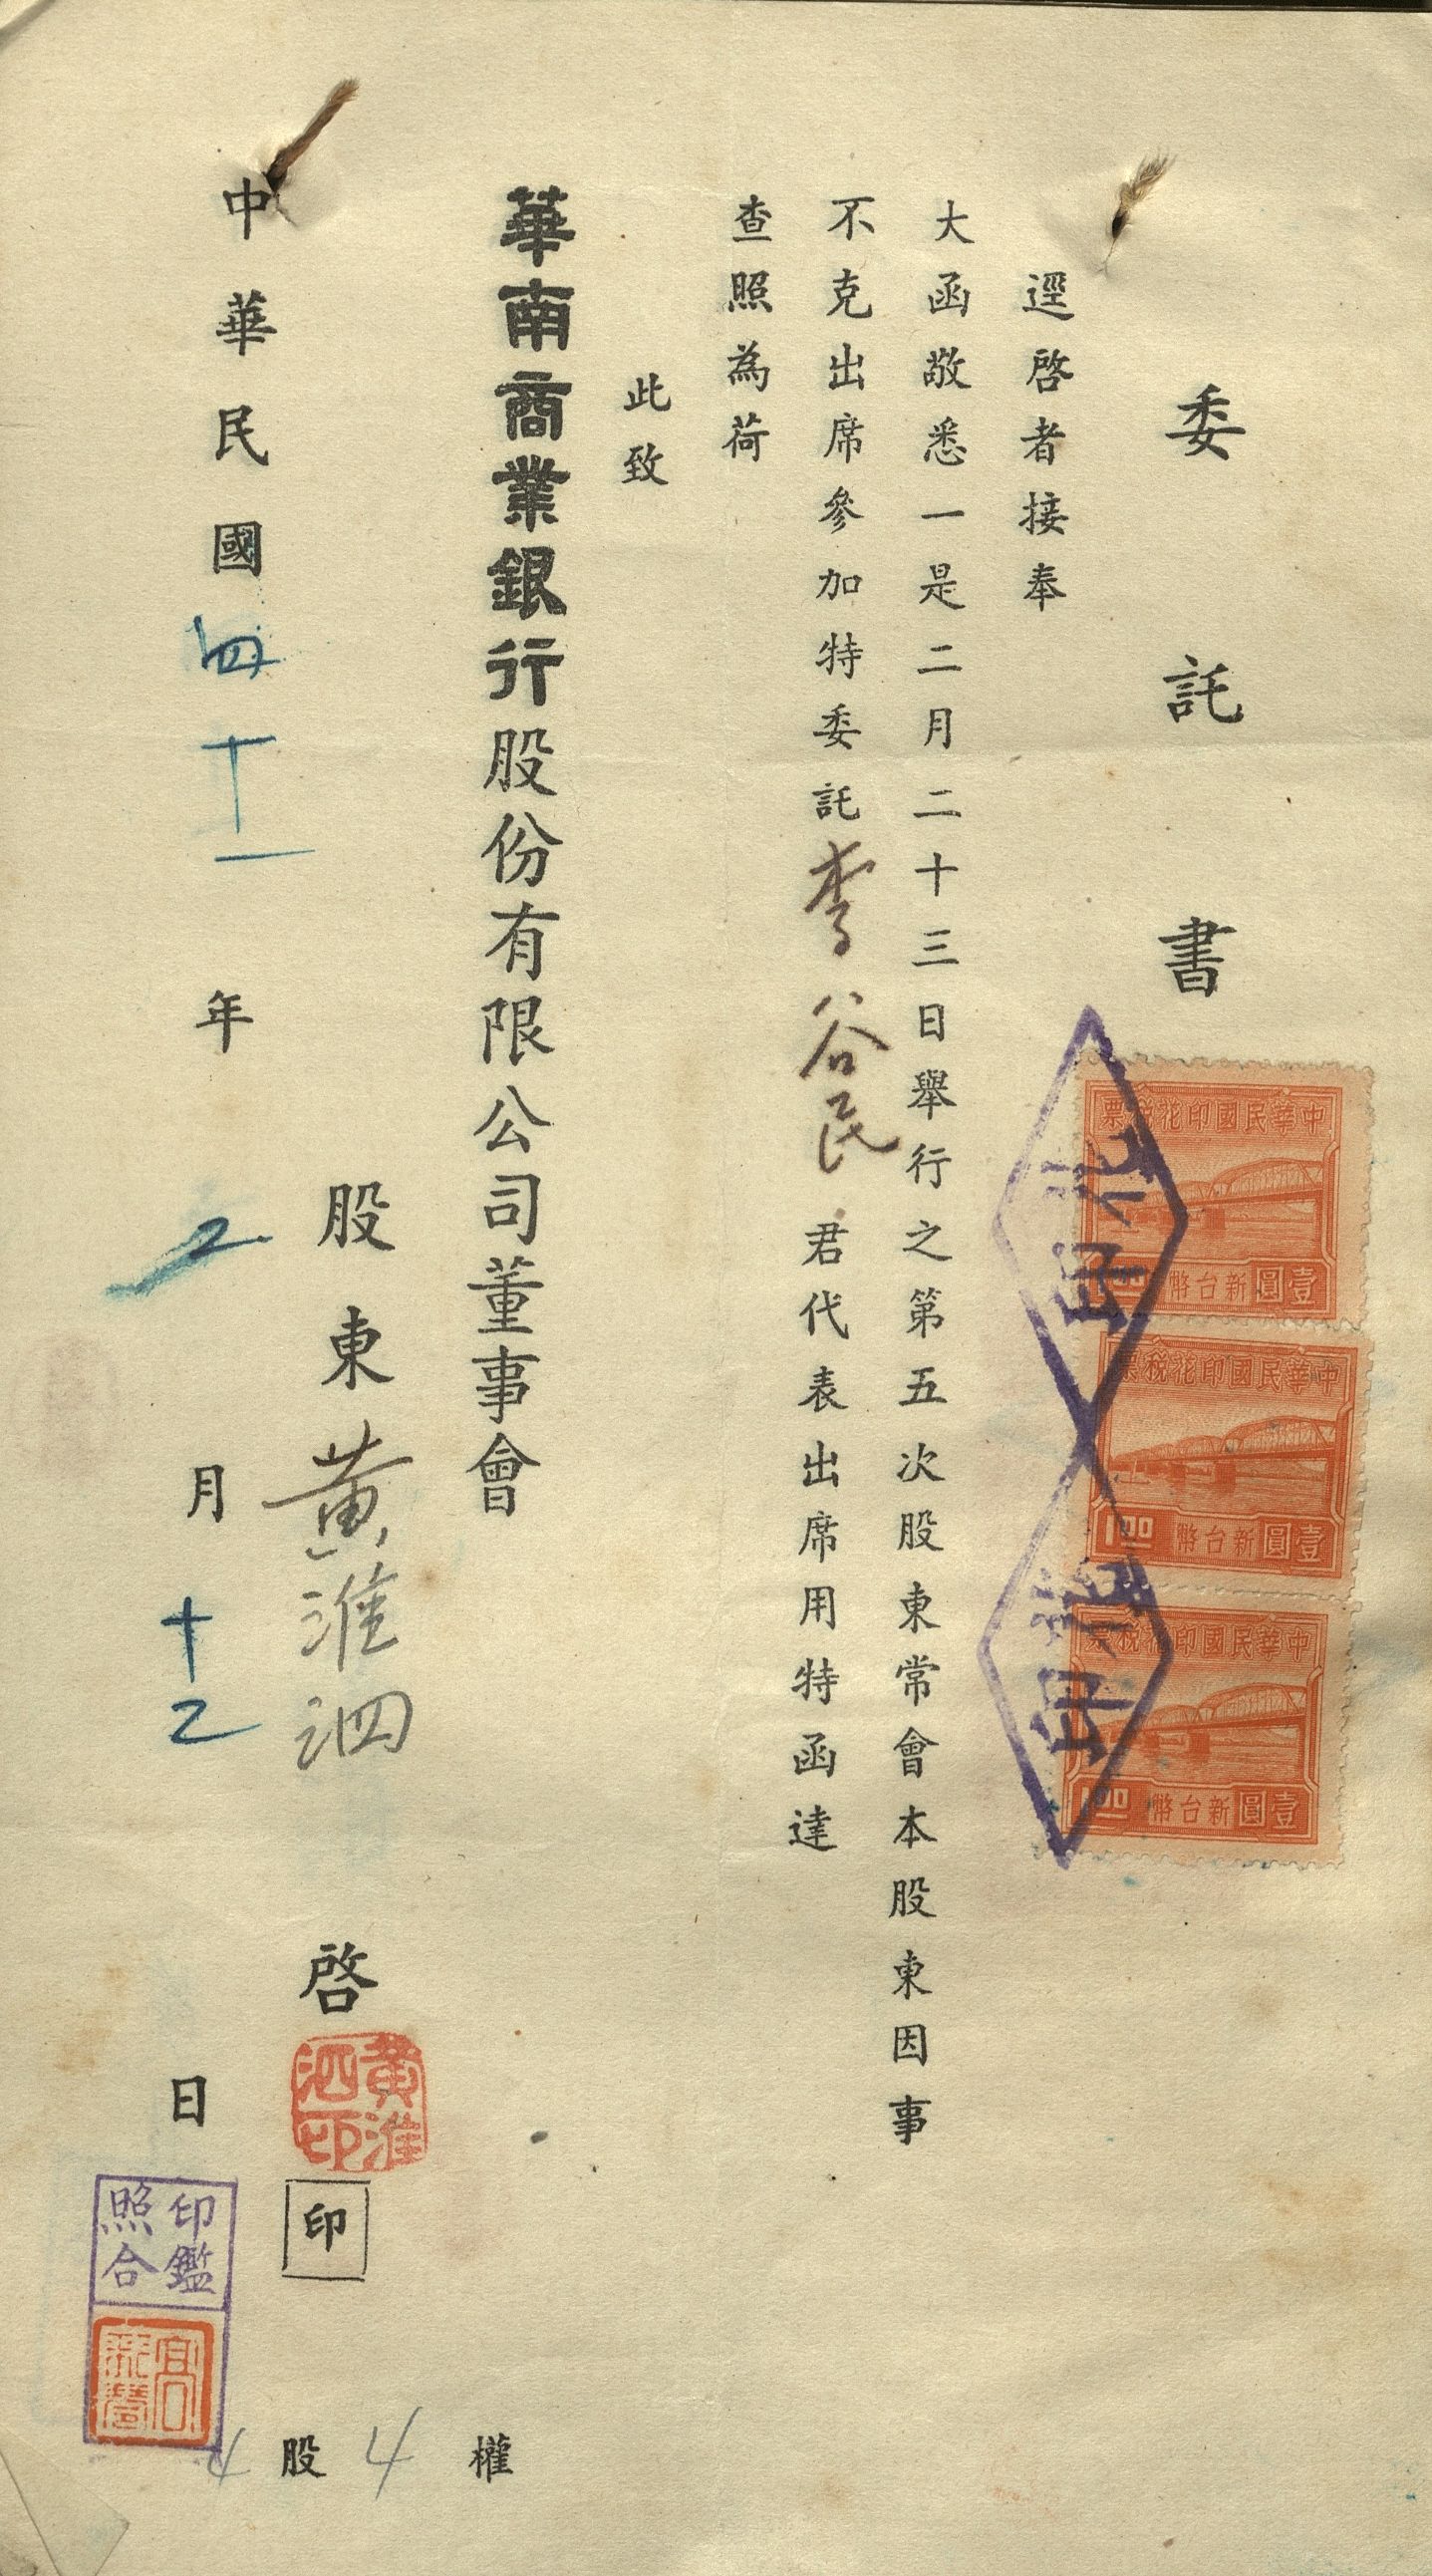 委託書
逕啓者接奉
大函敬悉一是二月二十三日舉行之第五次股東常會本股東因事
不克出席參加特委託李谷民君代表出席用特函達
查照為荷
此致
華南商業銀行股份有限公司董事會
股東黃淮泗啓
印
中華民國四十一年2月十二日
4股4權
中華民國印花稅票
壹圓新台幣
1.00
中華民國印花稅票
壹圓新台幣
1.00
中華民國印花稅票
壹圓新台幣
1.00
印花
印花
黃淮泗印
印鑑照合